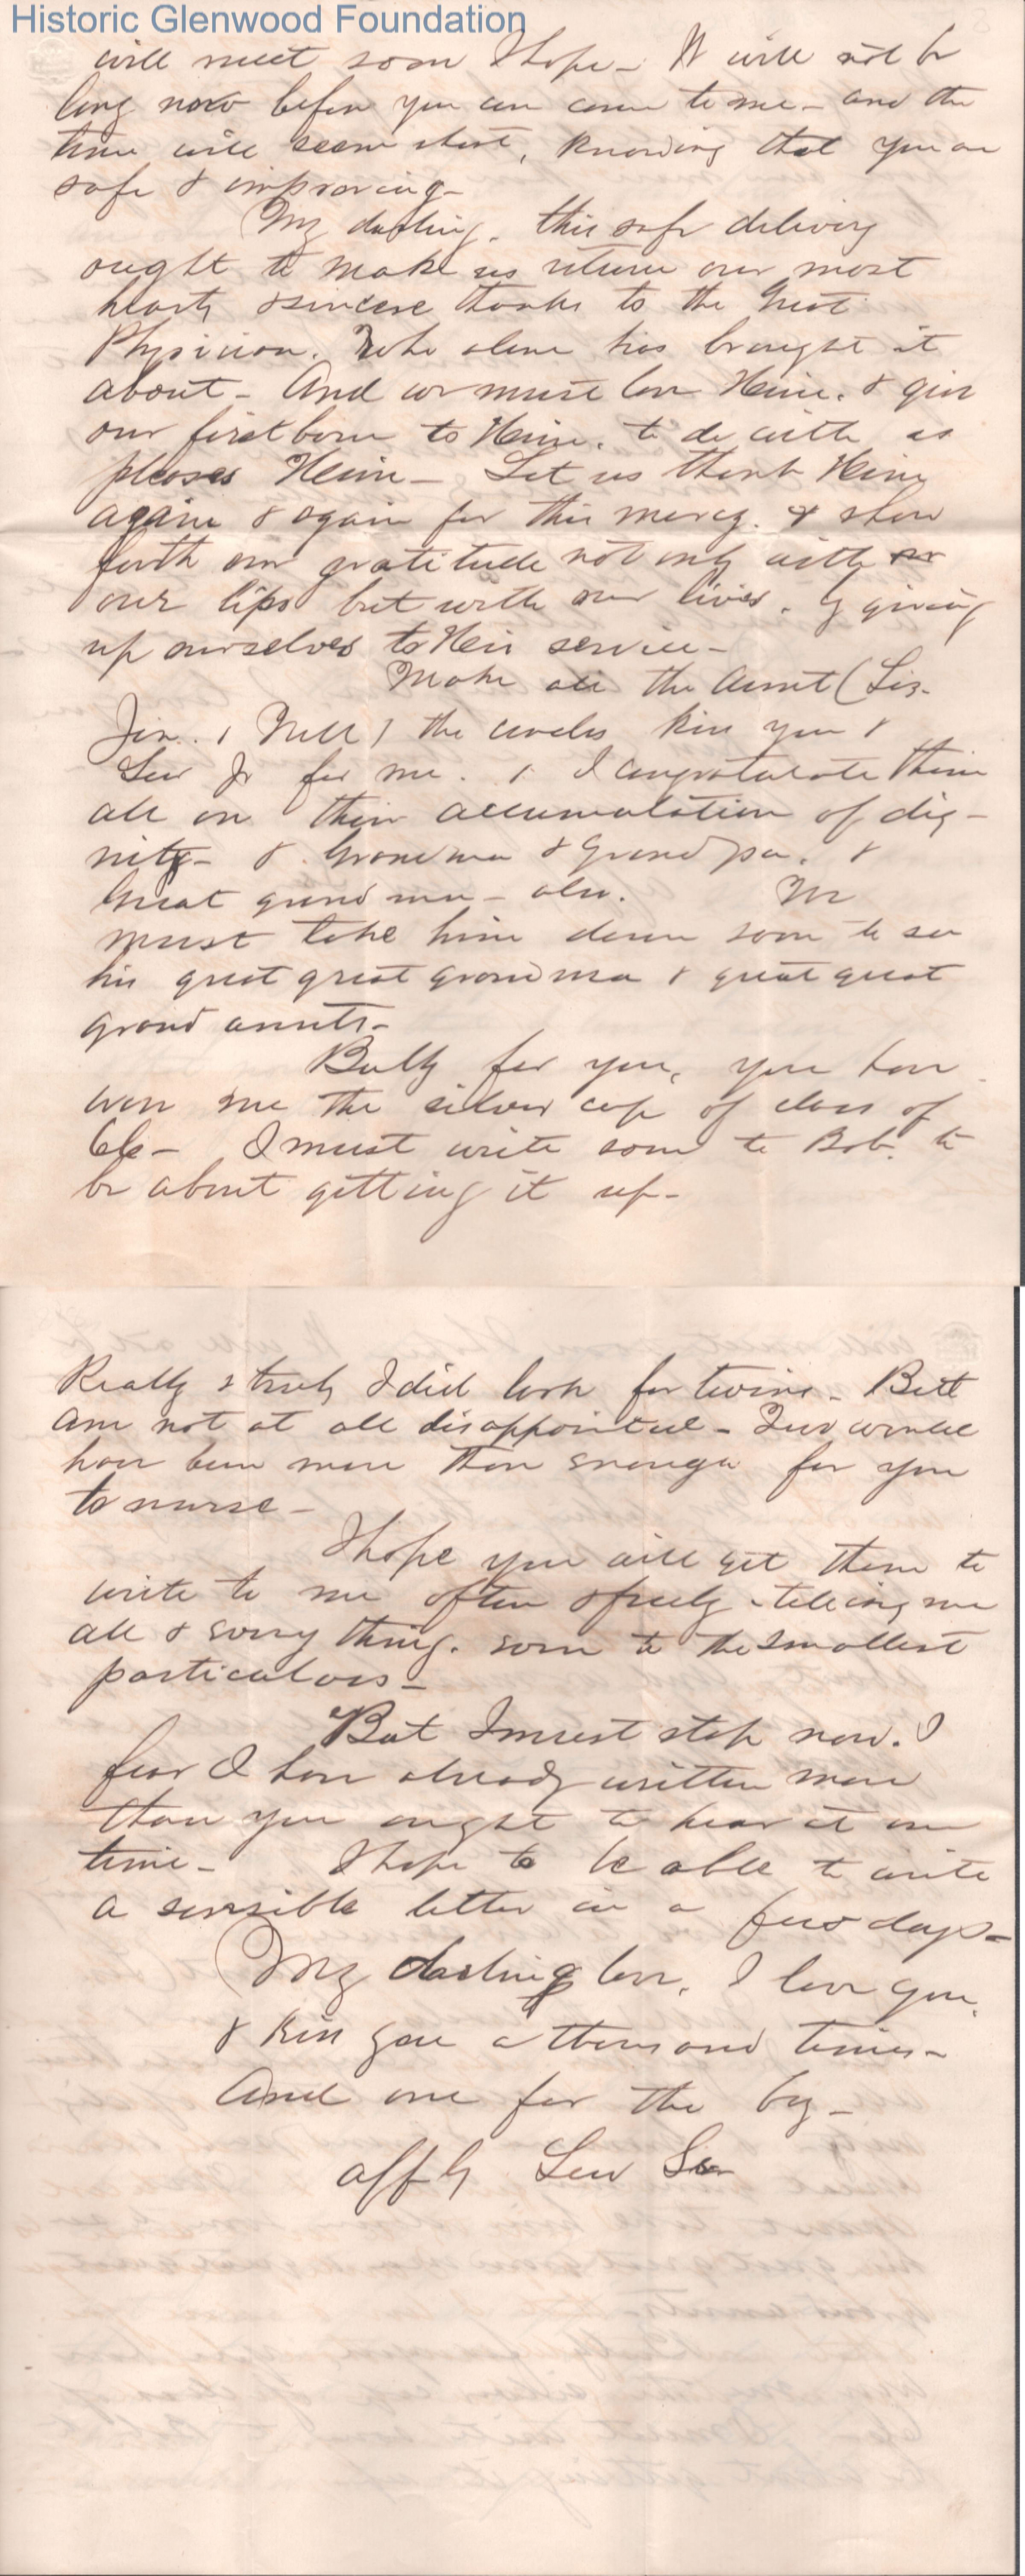 Historic Glenwood Foundation
will meet soon I hope - It will not be
long now before you can come to me - and the
time will seem short, knowing that you are
safe & improving -
My darling, this safe delivery
ought to make us return our most
hearty & sincere thanks to the Great
Physician. Who alone has brought it
about - And we must love Him, & give
our first born to Him, to do with as
pleases Him - Let us thank Him
again & again for this mercy. & show
forth our gratitude not only with
our lips but with our lives, by giving
up ourselves to His service -
Make all the Aunts (Liz.
Jin. & Nell) the uncles kiss you &
Lew Jr for me. & I congratulate them
all on their accumulation of dig-
nity - & Grandma & Grandpa, &
Great grand ma - also. We
must take him down soon to see
his great great grandma & great great
grand aunts -
Bully for you, you have
won me the silver cup of class of
66 - I must write soon to Bob. to
be about getting it up -
Really & truly I did look for twins - But
am not at all disappointed - Two would
have been more than enough for you
to nurse -
I hope you will get them to
write to me often & freely - telling me
all & every thing. even to the smallest
particulars -
But I must stop now. I
fear I have already written more
than you ought to hear at one
time - I hope to be able to write
a sensible letter in a few days -
My darling love, I love you,
& kiss you a thousand times -
And one for the boy -
affly Lew Sr